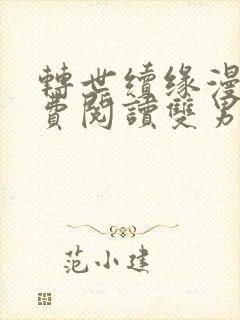 轉世續緣漫
費閱讀雙男
范小建